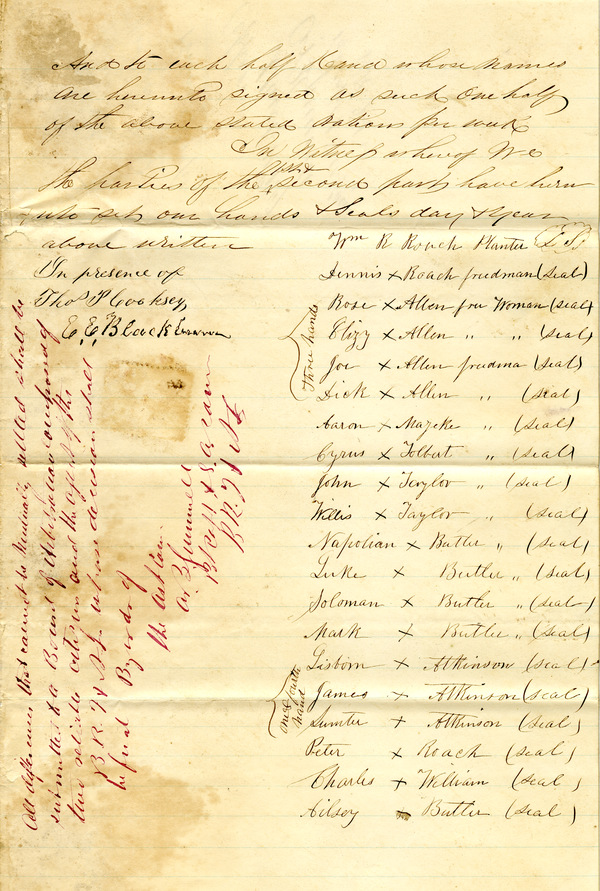 And to each half Hand whose names
are hereunto signed as such one half
of the above stated rations per week
In Witness whereof We
the parties of the first & second part have here
unto set our hands & Seals day & year
above written
In presence of
Thos P Cooksey
E. E. Black
Wm R Roach Planter
Dennis × Roach freedman (seal)
three hands
Rose × Allen free Woman (seal)
Elizy × Allen " " (seal)
Joe × Allen freedma (seal)
Dick × Allen " (seal)
Aaron × " (seal)
Cyrus × Tolbert " (seal)
John × Taylor " (seal)
Willis × Taylor " (seal)
Napolian × Butler " (seal)
Luke × Butler " (seal)
Soloman × Butler " (seal)
Mark × Butler " (seal)
Lisborn × Atkinson (seal)
one fourth hand
James × Atkinson (seal)
Sumter × Atkinson (seal)
Peter × Roach (seal)
Charles × William (seal)
Cilsey × Butler (seal)
All differences that cannot be mutually settled shall be
submitted to a Board of Arbitration composed of
two reliable citizens and the agent of the
B. R. F. & A. L. whose decision shall
be final By order of
the Act Com